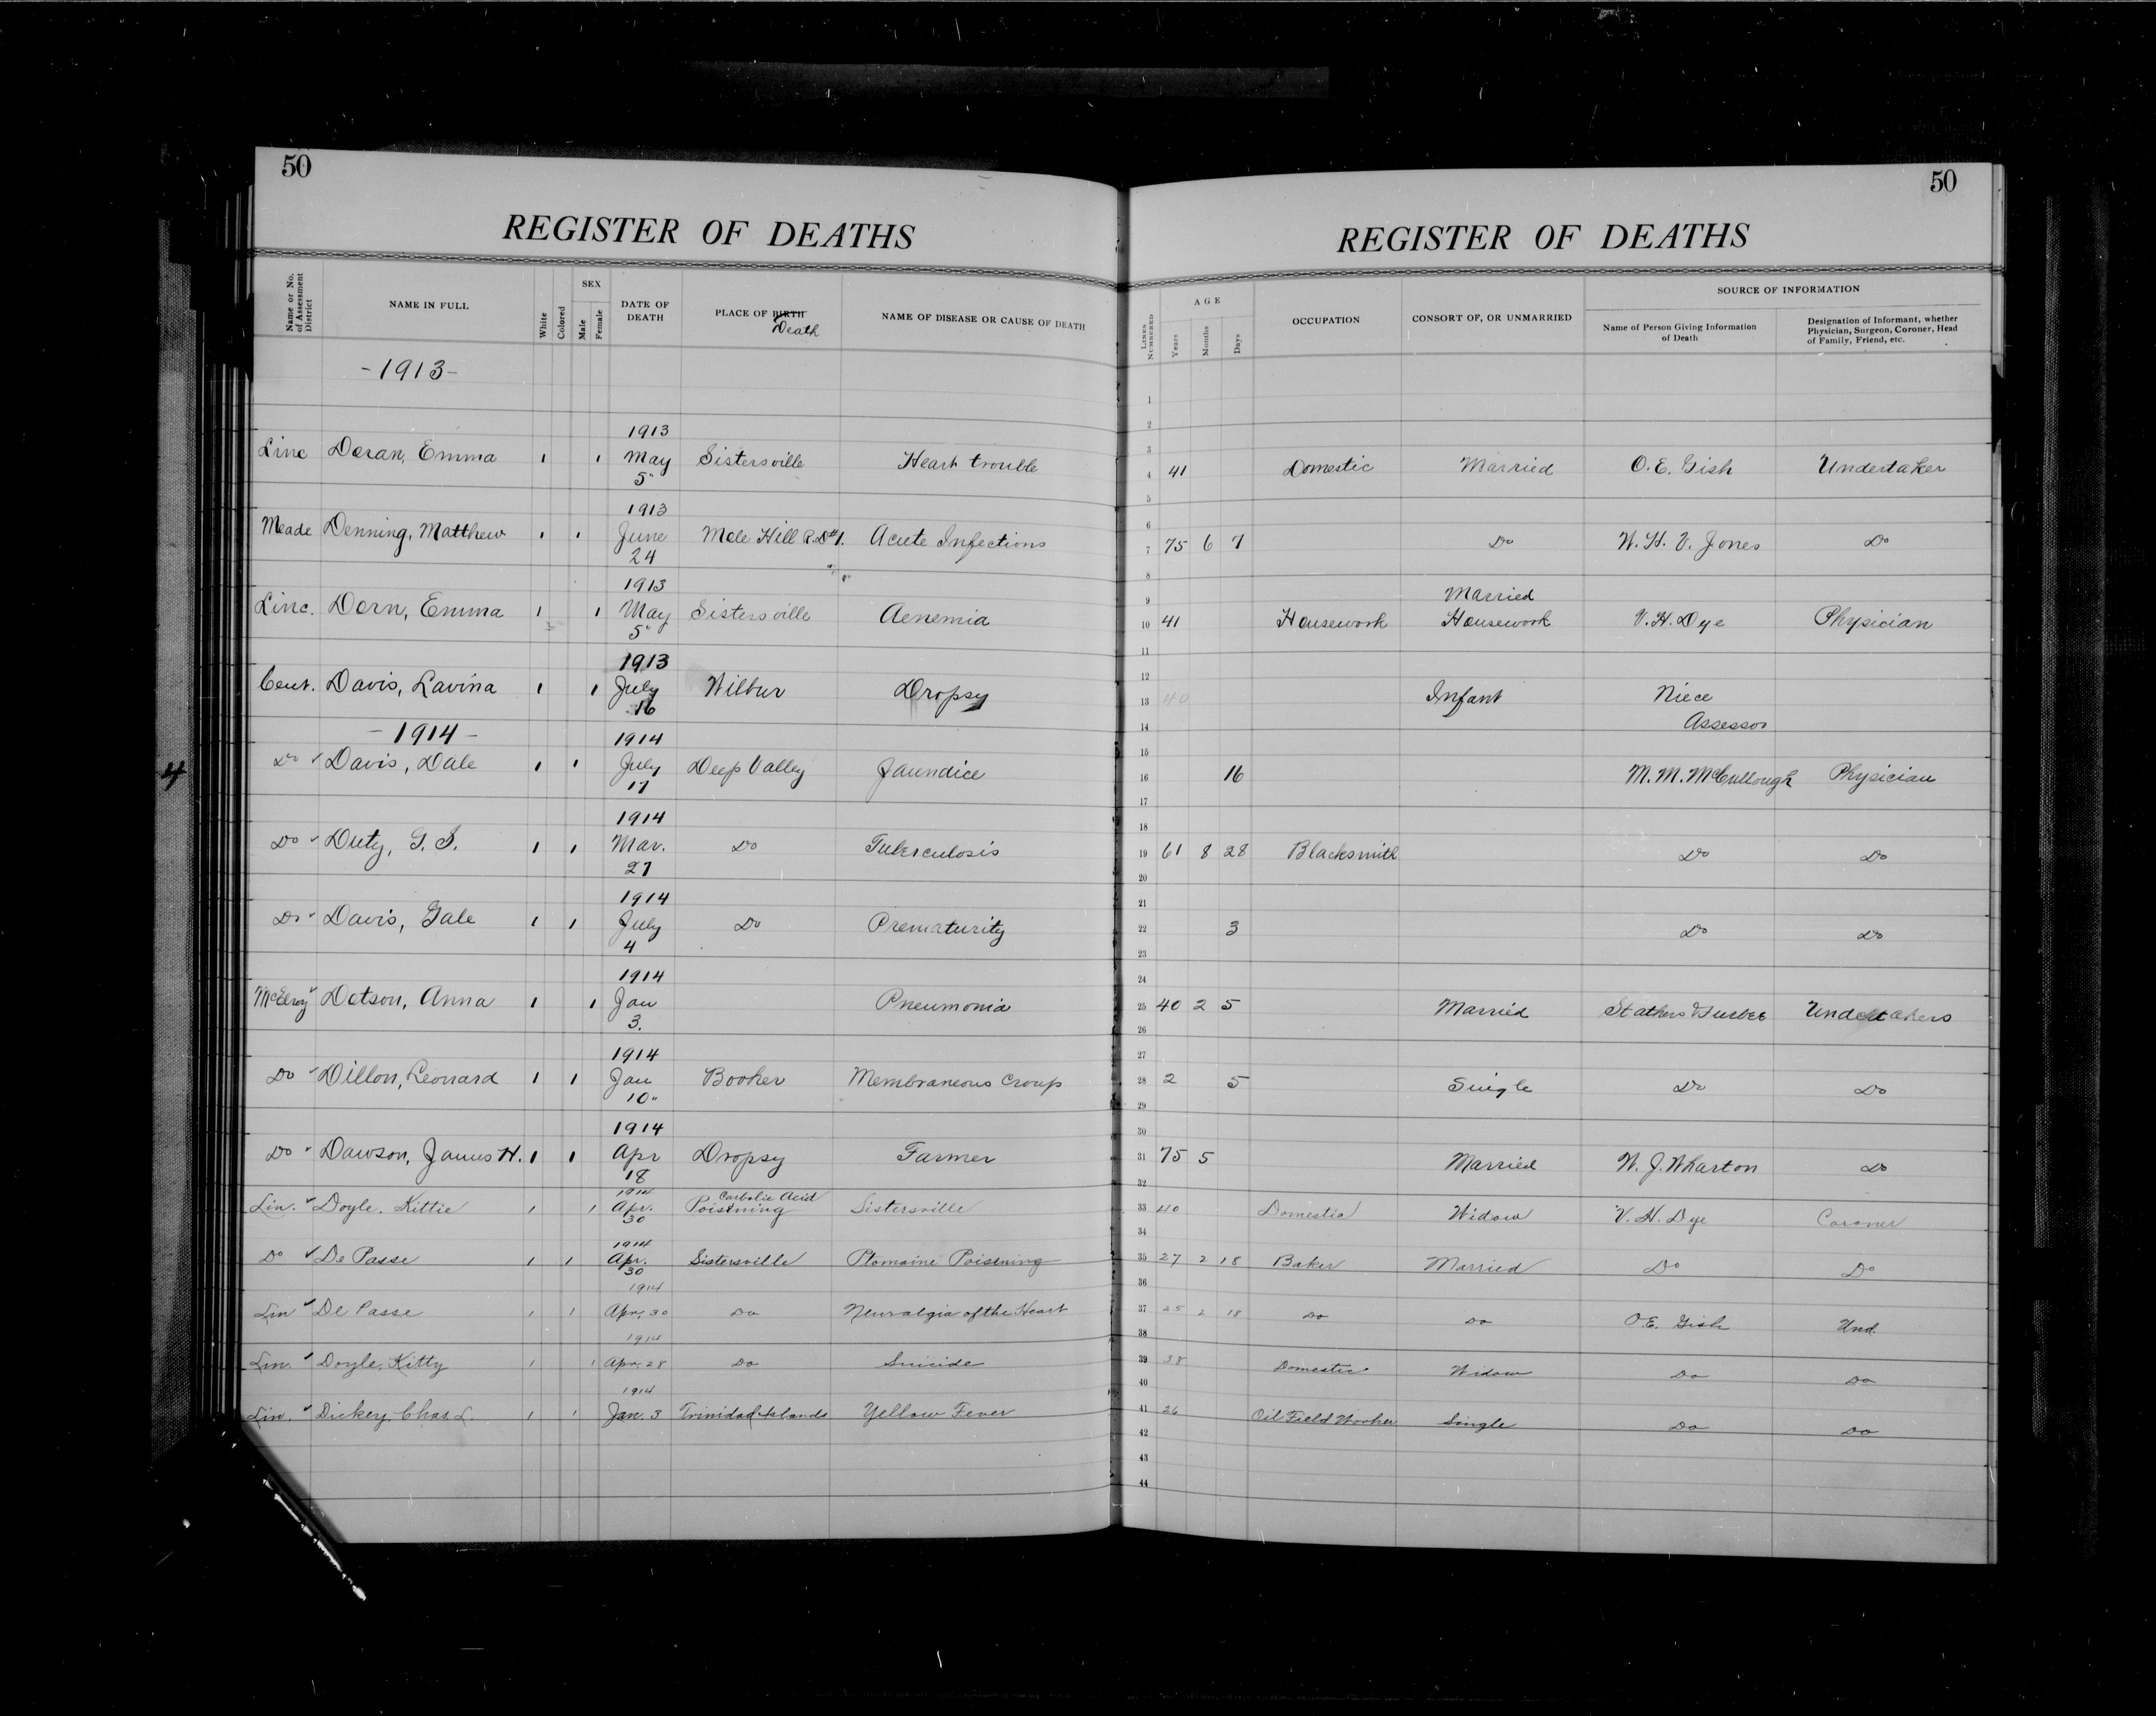 50
REGISTER OF DEATHS
Name or No. of Assessment District
NAME IN FULL
White
Colored
SEX
Male
Female
DATE OF DEATH
PLACE OF BIRTH Death
NAME OF DISEASE OR CAUSE OF DEATH
-1913-
Linc Doran, Emma 1 1 1913 May 5" Sistersville Heart trouble
Meade Denning, Matthew 1 1 1913 June 24 Mole Hill R.D#1. Acute Infections
Linc. Dorn, Emma 1 1 1913 May 5" Sistersville Aenemia
Cent. Davis, Lavina 1 1 1913 July 16 Wilbur Dropsy
-1914-
Do Davis, Dale 1 1 1914 July 17 Deep Valley Jaundice
Do Duty, G. S. 1 1 1914 Mar. 27 Do Tuberculosis
Do Davis, Gale 1 1 1914 July 4 Do Prematurity
McElroy Dotson, Anna 1 1 1914 Jan 3. Pneumonia
Do Dillon, Leonard 1 1 1914 Jan 10" Booker Membraneous Croup
Do Dawson, James H. 1 1 1914 Apr 18 Dropsy Farmer
Lin. Doyle, Kittie 1 1 1914 Apr. 30 Carbolic Acid Poisining Sistersville
Do De Passe 1 1 1914 Apr. 30 Sistersville Ptomaine Poisining
Lin De Passe 1 1 1914 Apr, 30 Do Neuralgia of the Heart
Lin. Doyle, Kitty 1 1 1914 Apr. 28 Do Suicide
Lin. Dickey, Chas L. 1 1 1914 Jan. 3 Trinidad Islands Yellow Fever
50
REGISTER OF DEATHS
LINES NUMBERED
AGE
Years
Months
Days
OCCUPATION
CONSORT OF, OR UNMARRIED
SOURCE OF INFORMATION
Name of Person Giving Information of Death
Designation of Informant, whether Physician, Surgeon, Coroner, Head of Family, Friend, etc.
1
2
3
4 41 Domestic Married O. E. Gish Undertaker
5
6
7 75 6 7 Do W. H. V. Jones Do
8
9 Married
10 41 Housework Housework V. H. Dye Physician
11
12
13 40 Infant Niece
14 Assessor
15
16 16 M. M. McCullough Physician
17
18
19 61 8 28 Blacksmith Do Do
20
21
22 3 Do Do
23
24
25 40 2 5 Married Stathers & Furbee Undertakers
26
27
28 2 5 Single Do Do
29
30
31 75 5 Married W. J. Wharton Do
32
33 40 Domestic Widow V. H. Dye Coroner
34
35 27 2 18 Baker Married Do Do
36
37 25 2 18 Do Do O.E. Gish Und.
38
39 38 Domestic Widow Do Do
40
41 26 Oil Field Worker Single Do Do
42
43
44
4